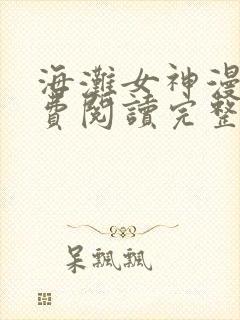 海灘女神漫
費閱讀完整
呆飄飄